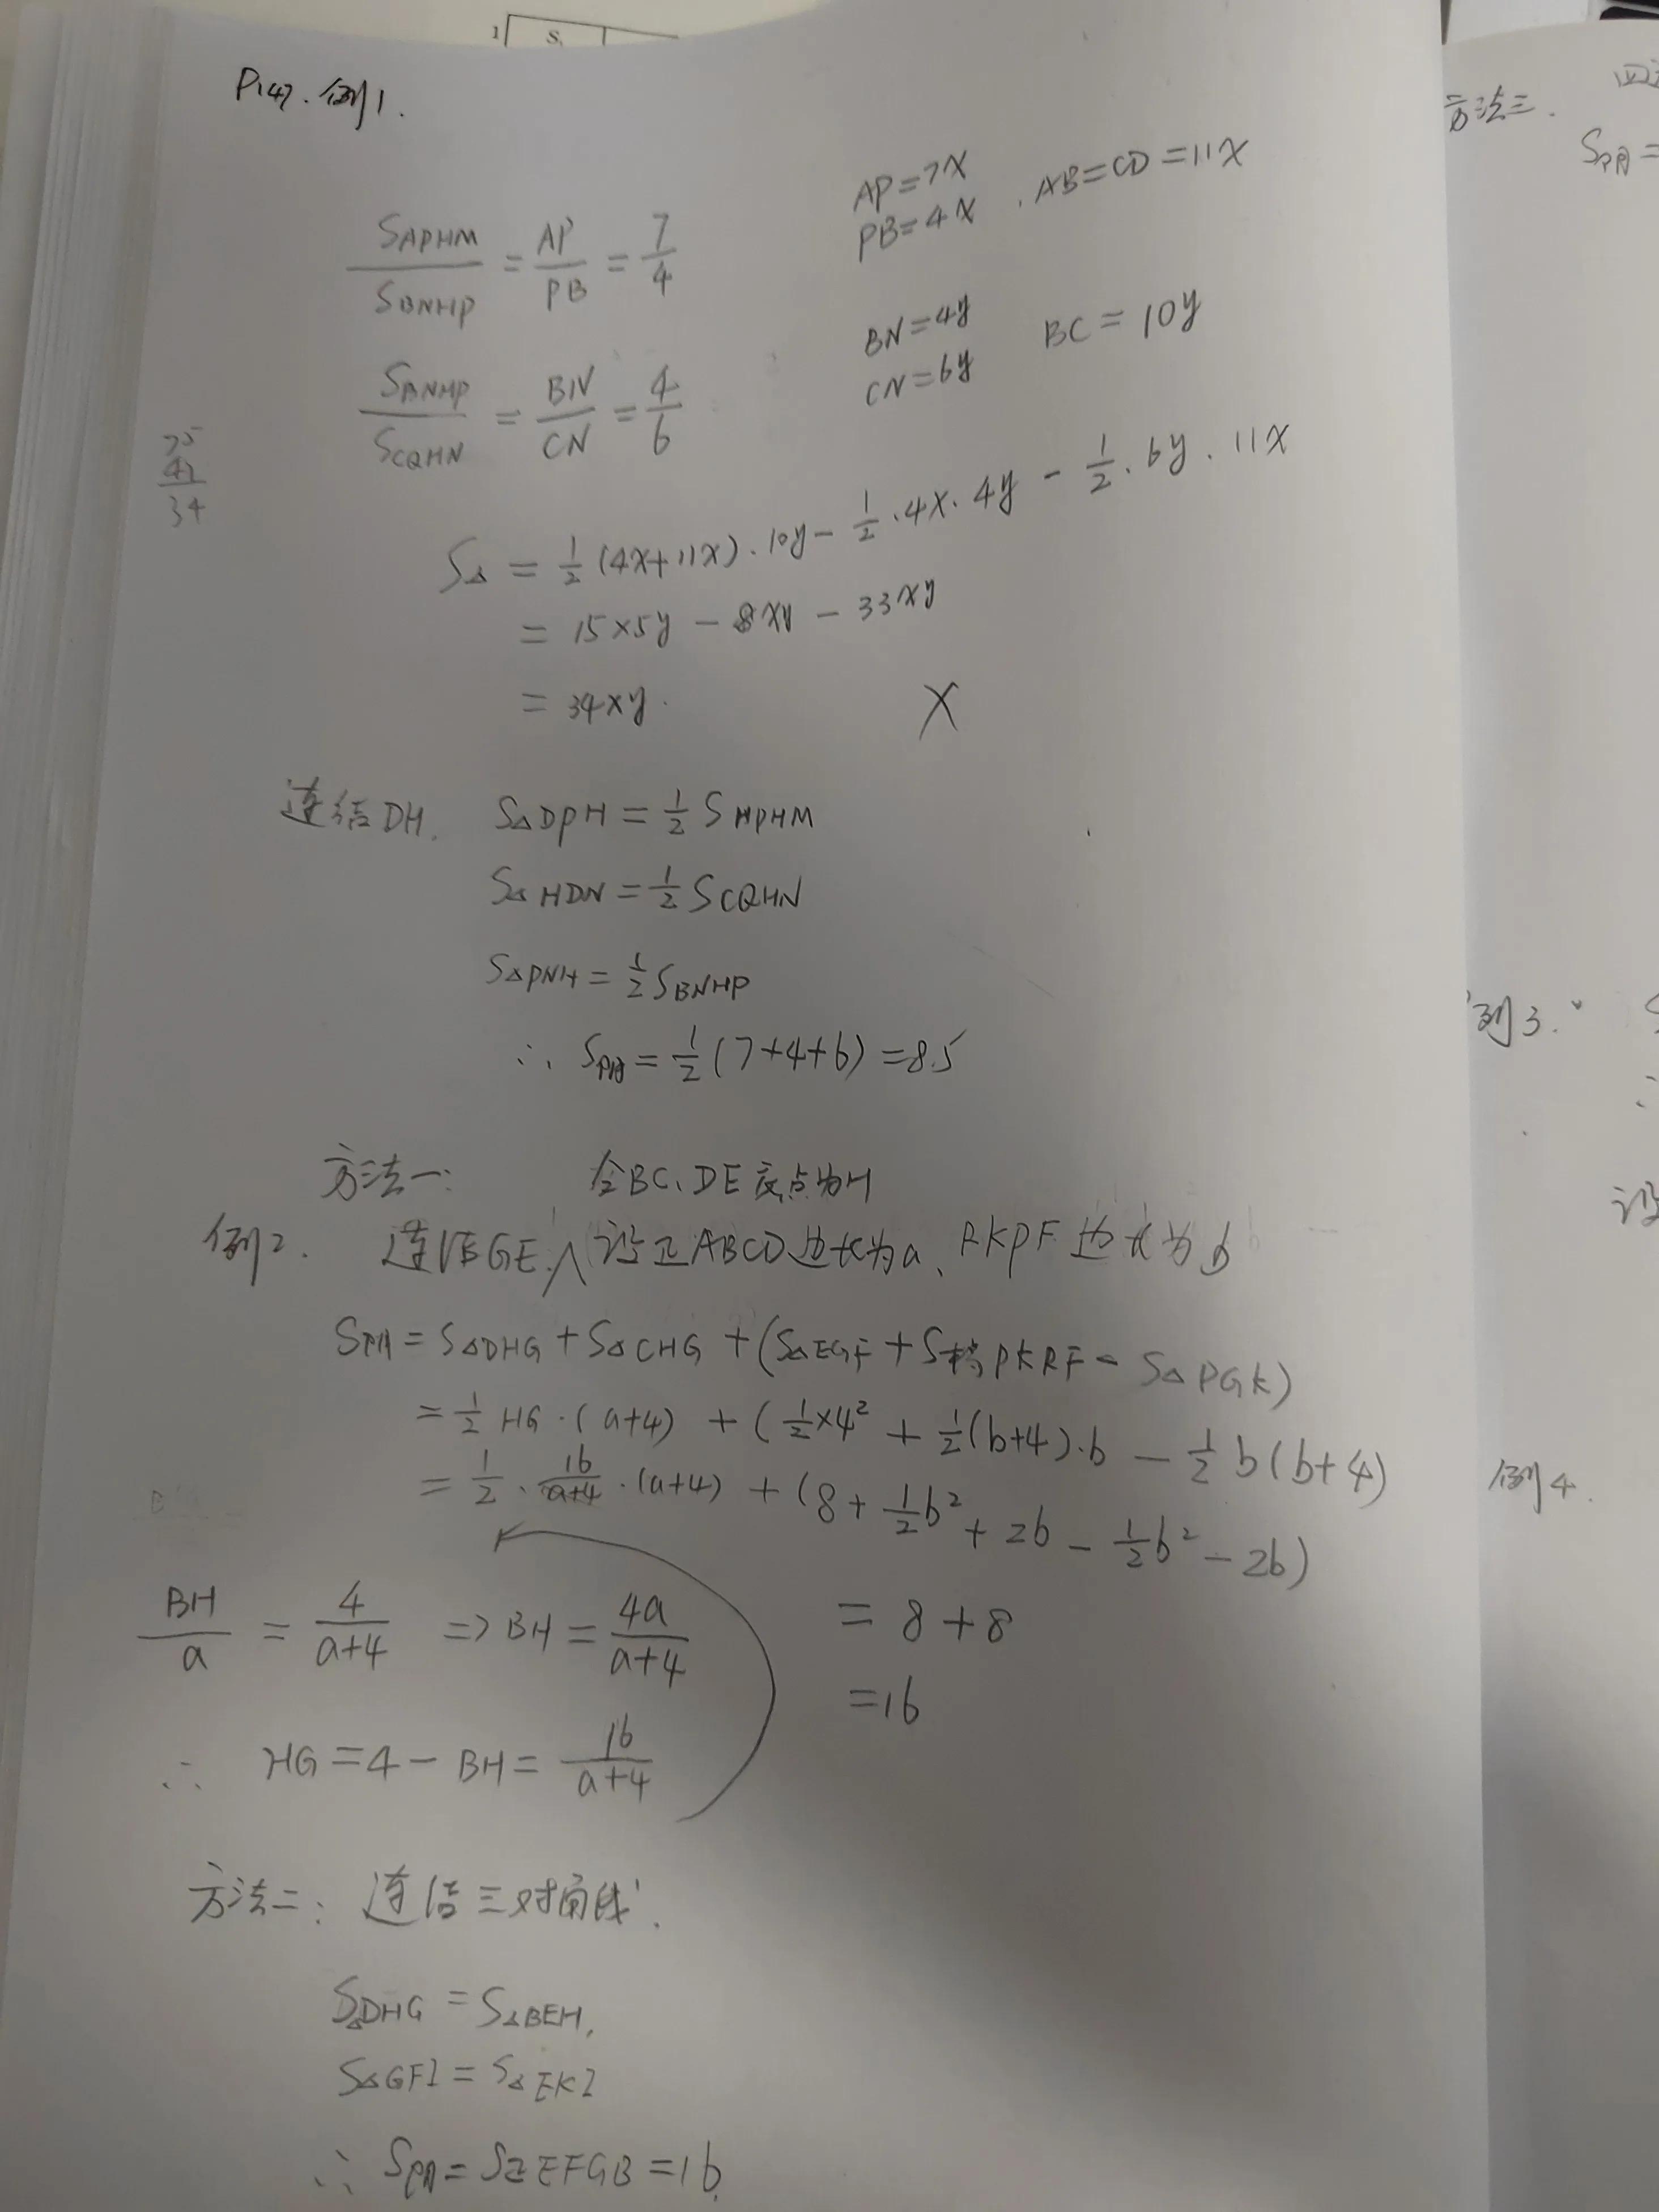 1 S₁
P147. 例1.
S_APHM / S_BNHP = AP / PB = 7/4
AP=7x
PB=4x . AB=CD=11x
S_BNHP / S_CQHN = BN / CN = 4/6
BN=4y
CN=6y BC=10y
75
41
34
S△ = 1/2 (4x+11x)·10y - 1/2·4x·4y - 1/2·6y·11x
= 15x5y - 8xy - 33xy
= 34xy. X
连结DH. S△DPH = 1/2 S APHM
S△HDN = 1/2 S CQHN
S△PNH = 1/2 S BNHP
∴ S阴 = 1/2 (7+4+6) = 8.5
方法一: 令BC、DE交点为H
例2. 连结GE,∧设正ABCD边长为a、RKPF边长为b
S阴 = S△DHG + S△CHG + (S△EGF + S梯PKRF - S△PGK)
= 1/2 HG·(a+4) + (1/2×4² + 1/2(b+4)·b - 1/2 b(b+4)
= 1/2 · 16/(a+4) ·(a+4) + (8 + 1/2b² + 2b - 1/2b² - 2b)
BH/a = 4/(a+4) => BH = 4a/(a+4)
= 8+8
=16
∴ HG=4-BH= 16/(a+4)
方法二: 连结三对角线.
S△DHG = S△BEH,
S△GFI = S△EKI
∴ S阴= S正EFGB =16.
方法三.
S阴=
例3.
设
例4.